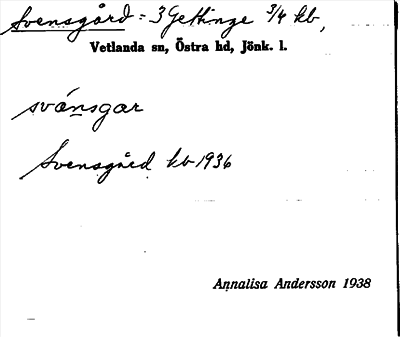 Svensgård = 3 Gettinge 3/4 kb,
Vetlanda sn, Östra hd, Jönk. l.
svánsgar
Svensgård kb 1936
Annalisa Andersson 1938